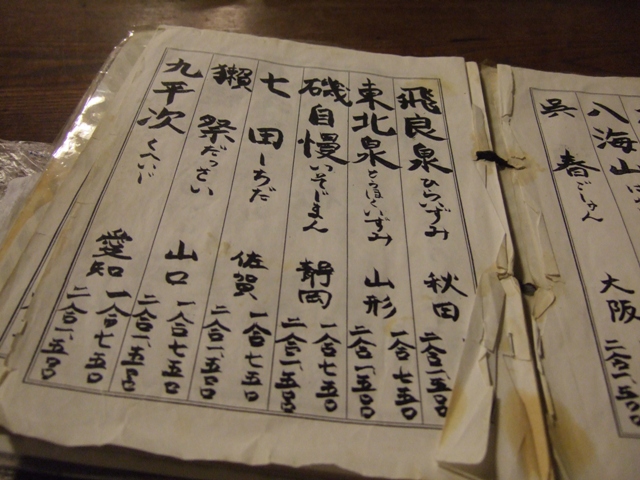 八海山
呉春 ごしゅん 大阪
二合一、五〇〇
飛良泉 ひらいずみ 秋田
二合一、五〇〇
東北泉 とうほくいずみ 山形
一合七五〇
二合一、五〇〇
磯自慢 いそじまん 静岡
一合七五〇
二合一、五〇〇
七田 しちだ 佐賀
一合七五〇
二合一、五〇〇
獺祭 だっさい 山口
一合七五〇
二合一、五〇〇
九平次 くへいじ 愛知
一合七五〇
二合一、五〇〇